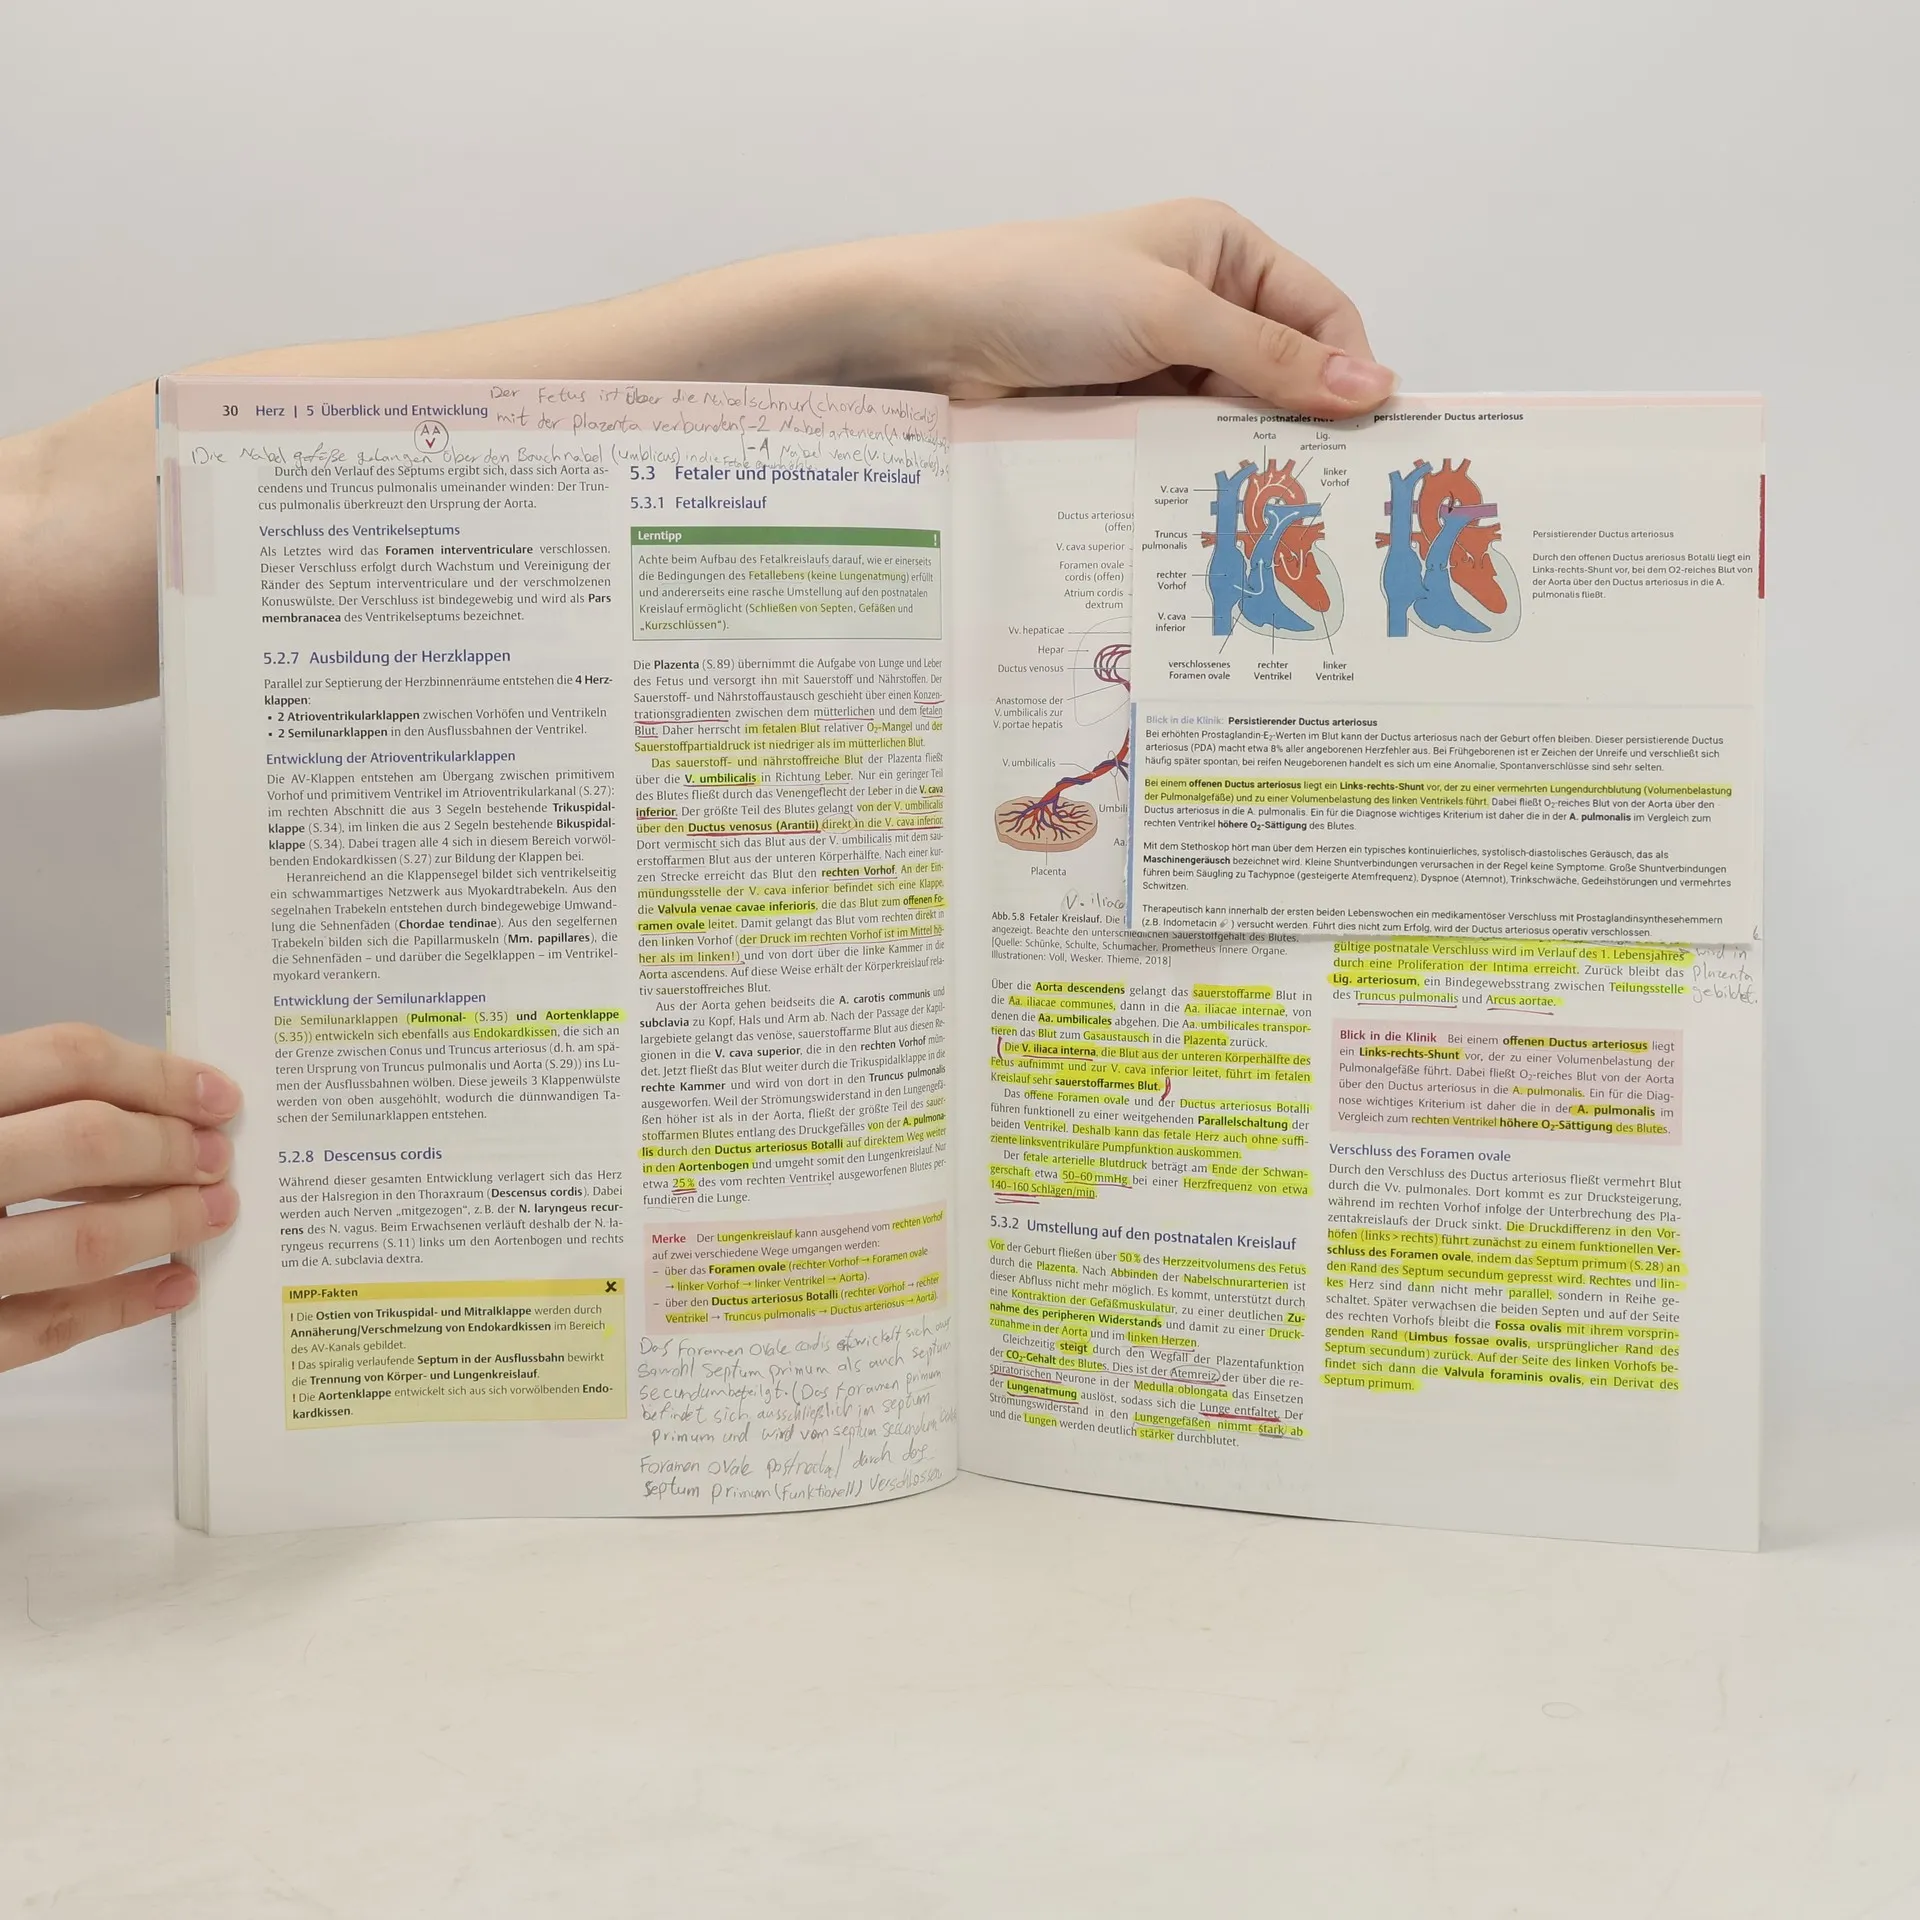 30 Herz | 5 Überblick und Entwicklung
Der Fetus ist Über die Nabelschnur (chorda umbilicalis)
mit der plazenta verbunden -2 Nabelarterien (A.
-1 Nabel vene (V. umbilicales)
AA
V
Die Nabel gefäße gelangen über den Bauchnabel (umbilicus) in die
Durch den Verlauf des Septums ergibt sich, dass sich Aorta as-
cendens und Truncus pulmonalis umeinander winden: Der Trun-
cus pulmonalis überkreuzt den Ursprung der Aorta.
Verschluss des Ventrikelseptums
Als Letztes wird das Foramen interventriculare verschlossen.
Dieser Verschluss erfolgt durch Wachstum und Vereinigung der
Ränder des Septum interventriculare und der verschmolzenen
Konuswülste. Der Verschluss ist bindegewebig und wird als Pars
membranacea des Ventrikelseptums bezeichnet.
5.2.7 Ausbildung der Herzklappen
Parallel zur Septierung der Herzbinnenräume entstehen die 4 Herz-
klappen:
• 2 Atrioventrikularklappen zwischen Vorhöfen und Ventrikeln
• 2 Semilunarklappen in den Ausflussbahnen der Ventrikel.
Entwicklung der Atrioventrikularklappen
Die AV-Klappen entstehen am Übergang zwischen primitivem
Vorhof und primitivem Ventrikel im Atrioventrikularkanal (S.27):
im rechten Abschnitt die aus 3 Segeln bestehende Trikuspidal-
klappe (S.34), im linken die aus 2 Segeln bestehende Bikuspidal-
klappe (S.34). Dabei tragen alle 4 sich in diesem Bereich vorwöl-
benden Endokardkissen (S.27) zur Bildung der Klappen bei.
Heranreichend an die Klappensegel bildet sich ventrikelseitig
ein schwammartiges Netzwerk aus Myokardtrabekeln. Aus den
segelnahen Trabekeln entstehen durch bindegewebige Umwand-
lung die Sehnenfäden (Chordae tendinae). Aus den segelfernen
Trabekeln bilden sich die Papillarmuskeln (Mm. papillares), die
die Sehnenfäden – und darüber die Segelklappen – im Ventrikel-
myokard verankern.
Entwicklung der Semilunarklappen
Die Semilunarklappen (Pulmonal- (S.35) und Aortenklappe
(S.35)) entwickeln sich ebenfalls aus Endokardkissen, die sich an
der Grenze zwischen Conus und Truncus arteriosus (d. h. am spä-
teren Ursprung von Truncus pulmonalis und Aorta (S.29)) ins Lu-
men der Ausflussbahnen wölben. Diese jeweils 3 Klappenwülste
werden von oben ausgehöhlt, wodurch die dünnwandigen Ta-
schen der Semilunarklappen entstehen.
5.2.8 Descensus cordis
Während dieser gesamten Entwicklung verlagert sich das Herz
aus der Halsregion in den Thoraxraum (Descensus cordis). Dabei
werden auch Nerven „mitgezogen“, z. B. der N. laryngeus recur-
rens des N. vagus. Beim Erwachsenen verläuft deshalb der N. la-
ryngeus recurrens (S.11) links um den Aortenbogen und rechts
um die A. subclavia dextra.
IMPP-Fakten
! Die Ostien von Trikuspidal- und Mitralklappe werden durch
Annäherung/Verschmelzung von Endokardkissen im Bereich
des AV-Kanals gebildet.
! Das spiralig verlaufende Septum in der Ausflussbahn bewirkt
die Trennung von Körper- und Lungenkreislauf.
! Die Aortenklappe entwickelt sich aus sich vorwölbenden Endo-
kardkissen.
5.3 Fetaler und postnataler Kreislauf
5.3.1 Fetalkreislauf
Lerntipp !
Achte beim Aufbau des Fetalkreislaufs darauf, wie er einerseits
die Bedingungen des Fetallebens (keine Lungenatmung) erfüllt
und andererseits eine rasche Umstellung auf den postnatalen
Kreislauf ermöglicht (Schließen von Septen, Gefäßen und
„Kurzschlüssen“).
Die Plazenta (S.89) übernimmt die Aufgabe von Lunge und Leber
des Fetus und versorgt ihn mit Sauerstoff und Nährstoffen. Der
Sauerstoff- und Nährstoffaustausch geschieht über einen Konzen-
trationsgradienten zwischen dem mütterlichen und dem fetalen
Blut. Daher herrscht im fetalen Blut relativer O₂-Mangel und der
Sauerstoffpartialdruck ist niedriger als im mütterlichen Blut.
Das sauerstoff- und nährstoffreiche Blut der Plazenta fließt
über die V. umbilicalis in Richtung Leber. Nur ein geringer Teil
des Blutes fließt durch das Venengeflecht der Leber in die V. cava
inferior. Der größte Teil des Blutes gelangt von der V. umbilicalis
über den Ductus venosus (Arantii) direkt in die V. cava inferior.
Dort vermischt sich das Blut aus der V. umbilicalis mit dem sau-
erstoffarmen Blut aus der unteren Körperhälfte. Nach einer kur-
zen Strecke erreicht das Blut den rechten Vorhof. An der Ein-
mündungsstelle der V. cava inferior befindet sich eine Klappe,
die Valvula venae cavae inferioris, die das Blut zum offenen Fo-
ramen ovale leitet. Damit gelangt das Blut vom rechten direkt in
den linken Vorhof (der Druck im rechten Vorhof ist im Mittel hö-
her als im linken!) und von dort über die linke Kammer in die
Aorta ascendens. Auf diese Weise erhält der Körperkreislauf rela-
tiv sauerstoffreiches Blut.
Aus der Aorta gehen beidseits die A. carotis communis und
subclavia zu Kopf, Hals und Arm ab. Nach der Passage der Kapil-
largebiete gelangt das venöse, sauerstoffarme Blut aus diesen Re-
gionen in die V. cava superior, die in den rechten Vorhof mün-
det. Jetzt fließt das Blut weiter durch die Trikuspidalklappe in die
rechte Kammer und wird von dort in den Truncus pulmonalis
ausgeworfen. Weil der Strömungswiderstand in den Lungengefä-
ßen höher ist als in der Aorta, fließt der größte Teil des sauer-
stoffarmen Blutes entlang des Druckgefälles von der A. pulmona-
lis durch den Ductus arteriosus Botalli auf direktem Weg weiter
in den Aortenbogen und umgeht somit den Lungenkreislauf. Nur
etwa 25% des vom rechten Ventrikel ausgeworfenen Blutes per-
fundieren die Lunge.
Merke Der Lungenkreislauf kann ausgehend vom rechten Vorhof
auf zwei verschiedene Wege umgangen werden:
– über das Foramen ovale (rechter Vorhof → Foramen ovale
→ linker Vorhof → linker Ventrikel → Aorta).
– über den Ductus arteriosus Botalli (rechter Vorhof → rechter
Ventrikel → Truncus pulmonalis → Ductus arteriosus → Aorta).
Das Foramen Ovale cordis entwickelt sich aus
Sowohl Septum primum als auch septum
secundum beteiligt. (Das Foramen primum
befindet sich ausschließlich im septum
primum und wird vom septum secundum
Foramen Ovale postnatal durch das
septum primum (Funktionell) verschlossen
Ductus arteriosus
(offen)
V. cava superior
Foramen ovale
cordis (offen)
Atrium cordis
dextrum
Vv. hepaticae
Hepar
Ductus venosus
Anastomose der
V. umbilicalis zur
V. portae hepatis
V. umbilicalis
Umbili
Aa.
Placenta
V. iliaca
Abb. 5.8 Fetaler Kreislauf. Die
angezeigt. Beachte den unterschiedlichen Sauerstoffgehalt des Blutes.
[Quelle: Schünke, Schulte, Schumacher. Prometheus Innere Organe.
Illustrationen: Voll, Wesker. Thieme, 2018]
Über die Aorta descendens gelangt das sauerstoffarme Blut in
die Aa. iliacae communes, dann in die Aa. iliacae internae, von
denen die Aa. umbilicales abgehen. Die Aa. umbilicales transpor-
tieren das Blut zum Gasaustausch in die Plazenta zurück.
Die V. iliaca interna, die Blut aus der unteren Körperhälfte des
Fetus aufnimmt und zur V. cava inferior leitet, führt im fetalen
Kreislauf sehr sauerstoffarmes Blut.
Das offene Foramen ovale und der Ductus arteriosus Botalli
führen funktionell zu einer weitgehenden Parallelschaltung der
beiden Ventrikel. Deshalb kann das fetale Herz auch ohne suffi-
ziente linksventrikuläre Pumpfunktion auskommen.
Der fetale arterielle Blutdruck beträgt am Ende der Schwan-
gerschaft etwa 50–60 mmHg bei einer Herzfrequenz von etwa
140–160 Schlägen/min.
5.3.2 Umstellung auf den postnatalen Kreislauf
Vor der Geburt fließen über 50% des Herzzeitvolumens des Fetus
durch die Plazenta. Nach Abbinden der Nabelschnurarterien ist
dieser Abfluss nicht mehr möglich. Es kommt, unterstützt durch
eine Kontraktion der Gefäßmuskulatur, zu einer deutlichen Zu-
nahme des peripheren Widerstands und damit zu einer Druck-
zunahme in der Aorta und im linken Herzen.
Gleichzeitig steigt durch den Wegfall der Plazentafunktion
der CO₂-Gehalt des Blutes. Dies ist der Atemreiz, der über die re-
spiratorischen Neurone in der Medulla oblongata das Einsetzen
der Lungenatmung auslöst, sodass sich die Lunge entfaltet. Der
Strömungswiderstand in den Lungengefäßen nimmt stark ab
und die Lungen werden deutlich stärker durchblutet.
normales postnatales
persistierender Ductus arteriosus
Aorta
Lig.
arteriosum
linker
Vorhof
V. cava
superior
Truncus
pulmonalis
rechter
Vorhof
V. cava
inferior
verschlossenes
Foramen ovale
rechter
Ventrikel
linker
Ventrikel
Persistierender Ductus arteriosus
Durch den offenen Ductus areriosus Botalli liegt ein
Links-rechts-Shunt vor, bei dem O2-reiches Blut von
der Aorta über den Ductus arteriosus in die A.
pulmonalis fließt.
Blick in die Klinik: Persistierender Ductus arteriosus
Bei erhöhten Prostaglandin-E₂-Werten im Blut kann der Ductus arteriosus nach der Geburt offen bleiben. Dieser persistierende Ductus
arteriosus (PDA) macht etwa 8% aller angeborenen Herzfehler aus. Bei Frühgeborenen ist er Zeichen der Unreife und verschließt sich
häufig später spontan, bei reifen Neugeborenen handelt es sich um eine Anomalie, Spontanverschlüsse sind sehr selten.
Bei einem offenen Ductus arteriosus liegt ein Links-rechts-Shunt vor, der zu einer vermehrten Lungendurchblutung (Volumenbelastung
der Pulmonalgefäße) und zu einer Volumenbelastung des linken Ventrikels führt. Dabei fließt O₂-reiches Blut von der Aorta über den
Ductus arteriosus in die A. pulmonalis. Ein für die Diagnose wichtiges Kriterium ist daher die in der A. pulmonalis im Vergleich zum
rechten Ventrikel höhere O₂-Sättigung des Blutes.
Mit dem Stethoskop hört man über dem Herzen ein typisches kontinuierliches, systolisch-diastolisches Geräusch, das als
Maschinengeräusch bezeichnet wird. Kleine Shuntverbindungen verursachen in der Regel keine Symptome. Große Shuntverbindungen
führen beim Säugling zu Tachypnoe (gesteigerte Atemfrequenz), Dyspnoe (Atemnot), Trinkschwäche, Gedeihstörungen und vermehrtes
Schwitzen.
Therapeutisch kann innerhalb der ersten beiden Lebenswochen ein medikamentöser Verschluss mit Prostaglandinsynthesehemmern
(z.B. Indometacin) versucht werden. Führt dies nicht zum Erfolg, wird der Ductus arteriosus operativ verschlossen.
gültige postnatale Verschluss wird im Verlauf des 1. Lebensjahres
durch eine Proliferation der Intima erreicht. Zurück bleibt das
Lig. arteriosum, ein Bindegewebsstrang zwischen Teilungsstelle
des Truncus pulmonalis und Arcus aortae.
wird in
plazenta
gebildet.
Blick in die Klinik Bei einem offenen Ductus arteriosus liegt
ein Links-rechts-Shunt vor, der zu einer Volumenbelastung der
Pulmonalgefäße führt. Dabei fließt O₂-reiches Blut von der Aorta
über den Ductus arteriosus in die A. pulmonalis. Ein für die Diag-
nose wichtiges Kriterium ist daher die in der A. pulmonalis im
Vergleich zum rechten Ventrikel höhere O₂-Sättigung des Blutes.
Verschluss des Foramen ovale
Durch den Verschluss des Ductus arteriosus fließt vermehrt Blut
durch die Vv. pulmonales. Dort kommt es zur Drucksteigerung,
während im rechten Vorhof infolge der Unterbrechung des Pla-
zentakreislaufs der Druck sinkt. Die Druckdifferenz in den Vor-
höfen (links > rechts) führt zunächst zu einem funktionellen Ver-
schluss des Foramen ovale, indem das Septum primum (S.28) an
den Rand des Septum secundum gepresst wird. Rechtes und lin-
kes Herz sind dann nicht mehr parallel, sondern in Reihe ge-
schaltet. Später verwachsen die beiden Septen und auf der Seite
des rechten Vorhofs bleibt die Fossa ovalis mit ihrem vorsprin-
genden Rand (Limbus fossae ovalis, ursprünglicher Rand des
Septum secundum) zurück. Auf der Seite des linken Vorhofs be-
findet sich dann die Valvula foraminis ovalis, ein Derivat des
Septum primum.